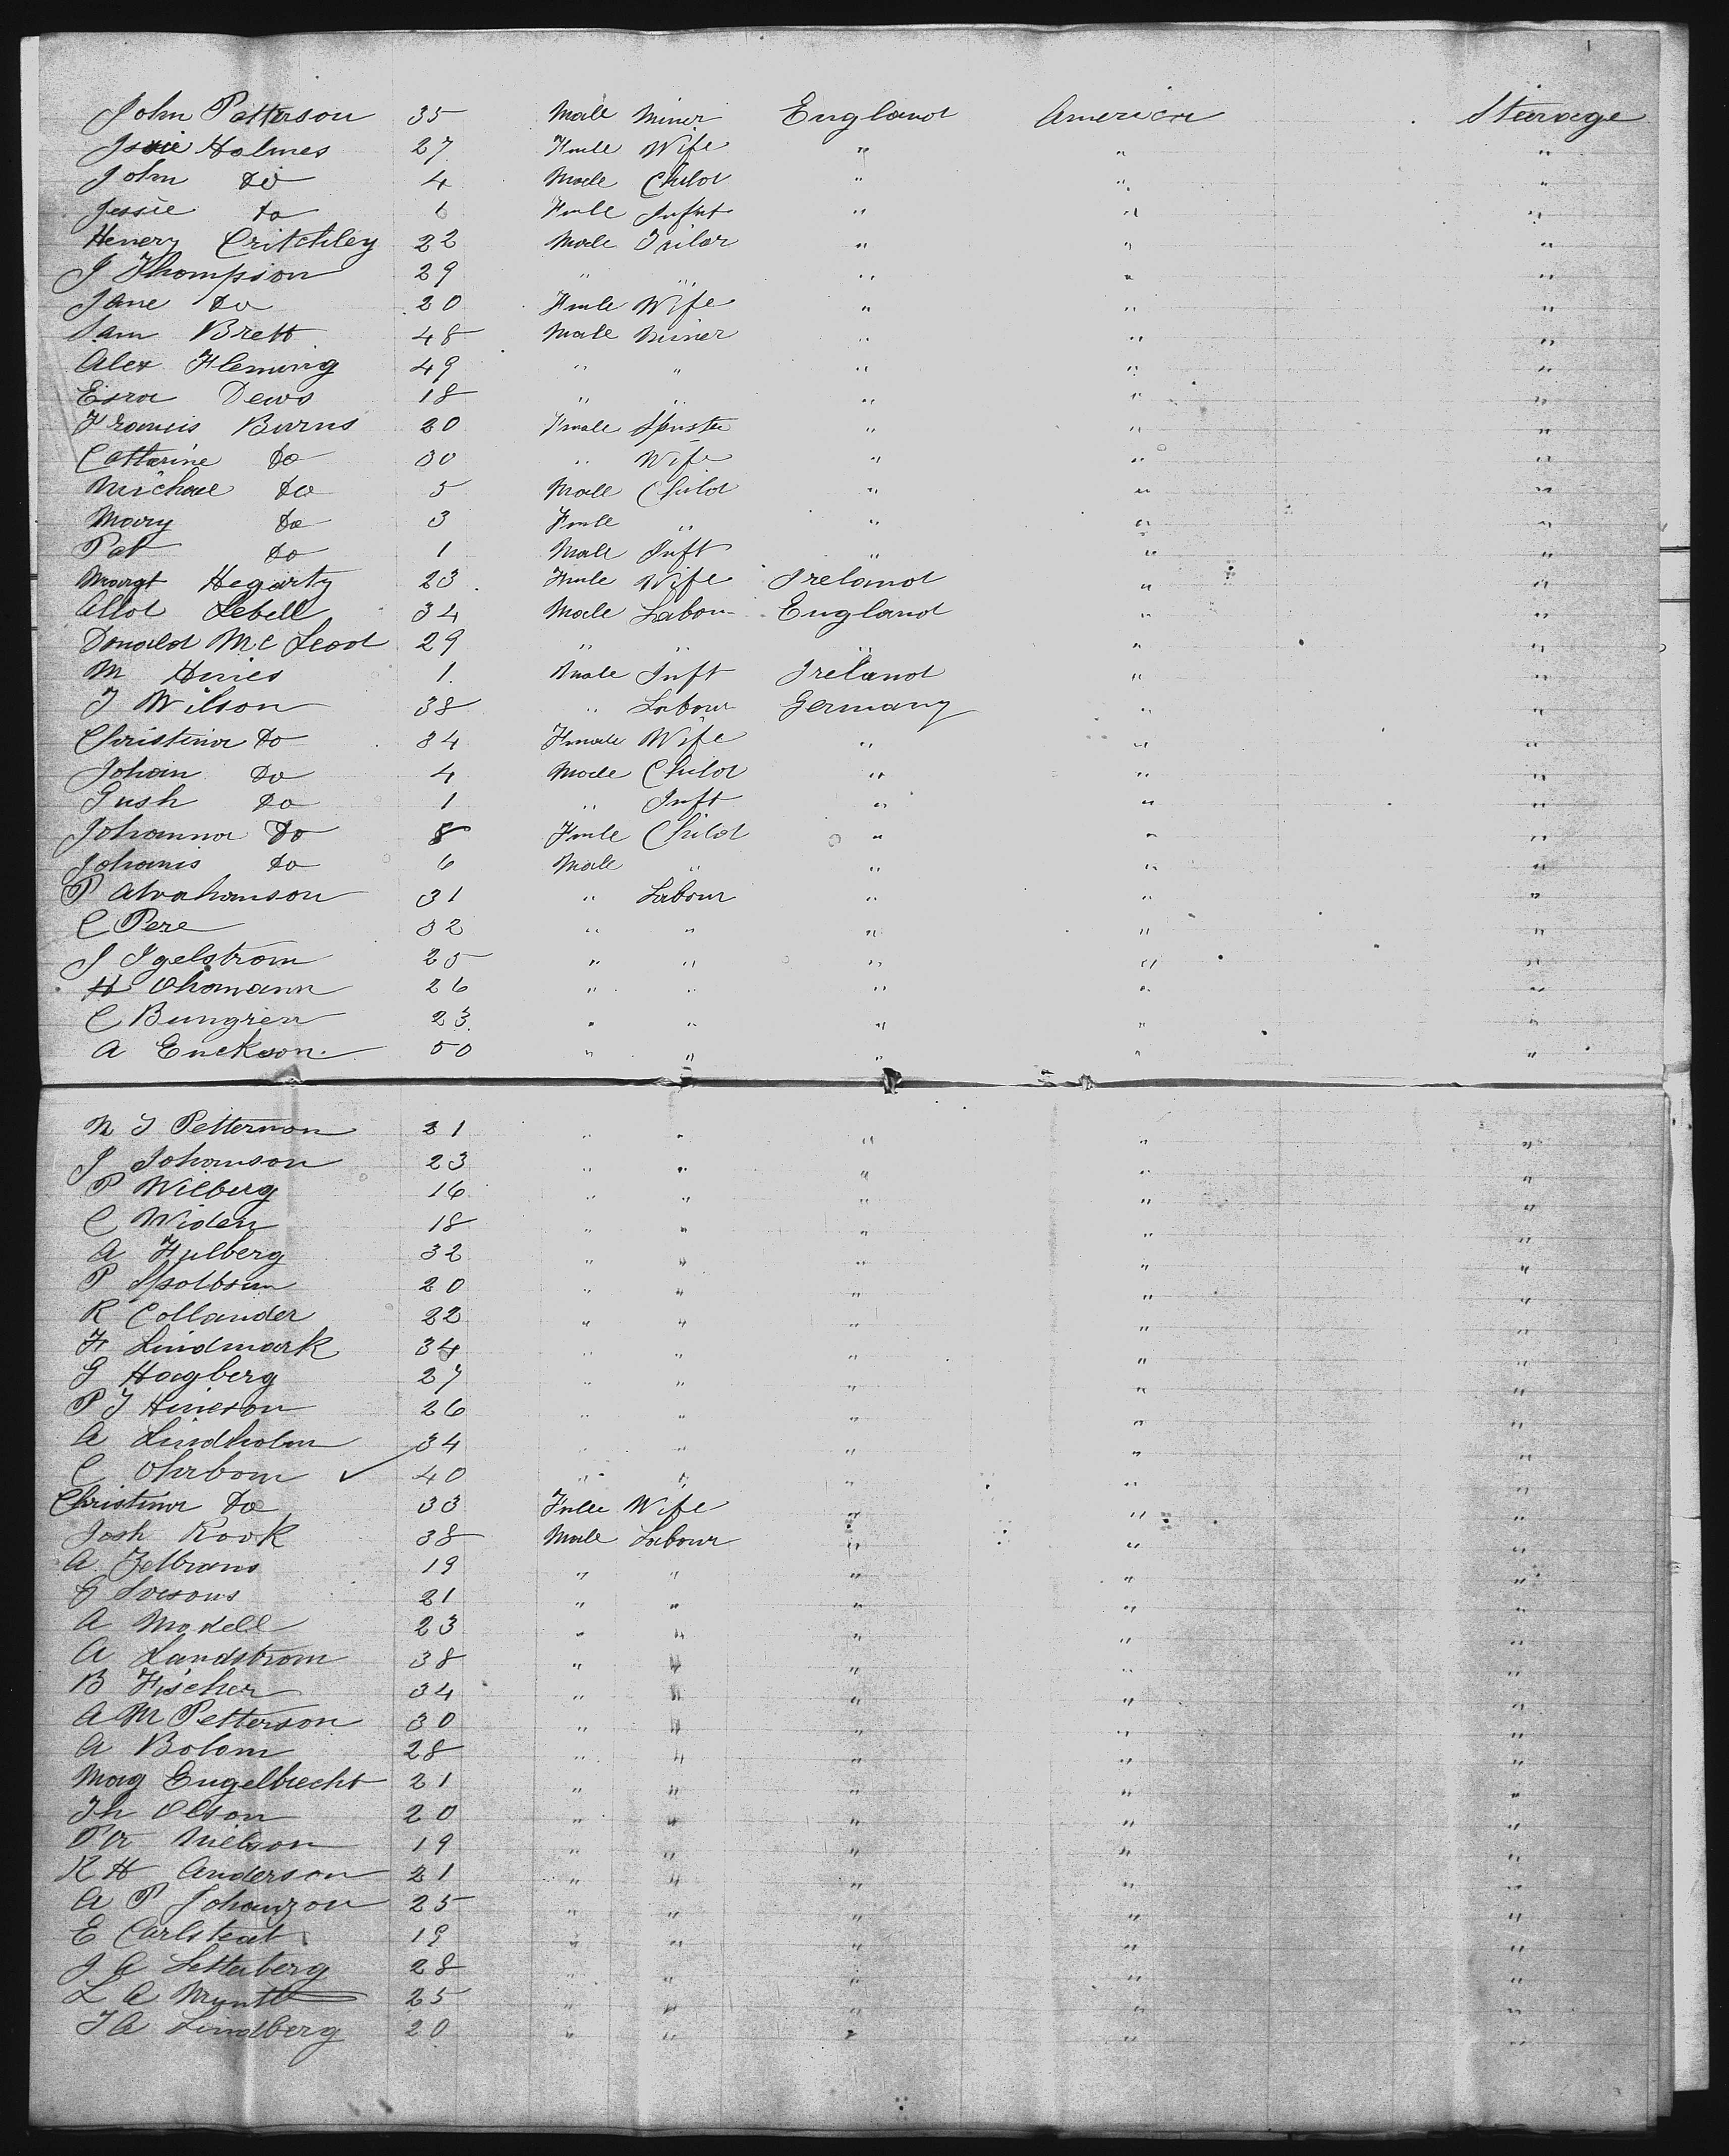 John Patterson 35 Male Miner England America Starage
Jssie Holmes 27 Fmle Wife " " "
John Do 4 Male Child " " "
Jessie Do 1 Fmle Infnt " " "
Henery Critchley 22 Male Tailor " " "
J Thompson 29 " " " " "
Jane Do 20 Fmle Wife " " "
Sam Brett 48 Male Miner " " "
Alex Fleming 49 " " " " "
Esra Dews 18 " " " " "
Francis Burns 20 Fmale Spinster " " "
Catterine Do 30 " Wife " " "
Michael Do 5 Male Child " " "
Mary Do 3 Fmle " " " "
Pat Do 1 Male Inft " " "
Margt Hegarty 23 Fmle Wife Ireland " "
Allot Lebell 34 Male Labour England " "
Donald Mc Leod 29 " " " " "
M Hines 1 Male Inft Ireland " "
J Wilson 38 " Labour Germany " "
Christina Do 34 Fmale Wife " " "
Johan Do 4 Male Child " " "
Gush Do 1 " Inft " " "
Johanna Do 8 Fmle Child " " "
Johanis Do 6 Male " " " "
P Abrahamson 31 " Labour " " "
C Pere 32 " " " " "
J Igelstrom 25 " " " " "
H Ohamann 26 " " " " "
C Bungrien 23 " " " " "
A Erickson 50 " " " " "
N J Petterson 21 " " " " "
J Johanson 23 " " " " "
P Wilberg 16 " " " " "
C Widen 18 " " " " "
A Fulberg 32 " " " " "
P 20 " " " " "
R Collander 22 " " " " "
F Lindmark 34 " " " " "
G Hagberg 27 " " " " "
P J 26 " " " " "
A Lindholm 34 " " " " "
C Ohrbom ✓ 40 " " " " "
Christina Do 33 Fmle Wife " " "
Josh Rook 38 Male Labour " " "
A 19 " " " " "
G 21 " " " " "
A Modell 23 " " " " "
A Landstrom 38 " " " " "
B Fischer 34 " " " " "
A M Petterson 30 " " " " "
A Bolom 28 " " " " "
Mag Engelbrecht 21 " " " " "
Th Olson 20 " " " " "
Nielson 19 " " " " "
K H Anderson 21 " " " " "
A P Johanzon 25 " " " " "
E Carlstedt 19 " " " " "
J A Setterberg 28 " " " " "
L A 25 " " " " "
J A Lindberg 20 " " " " "